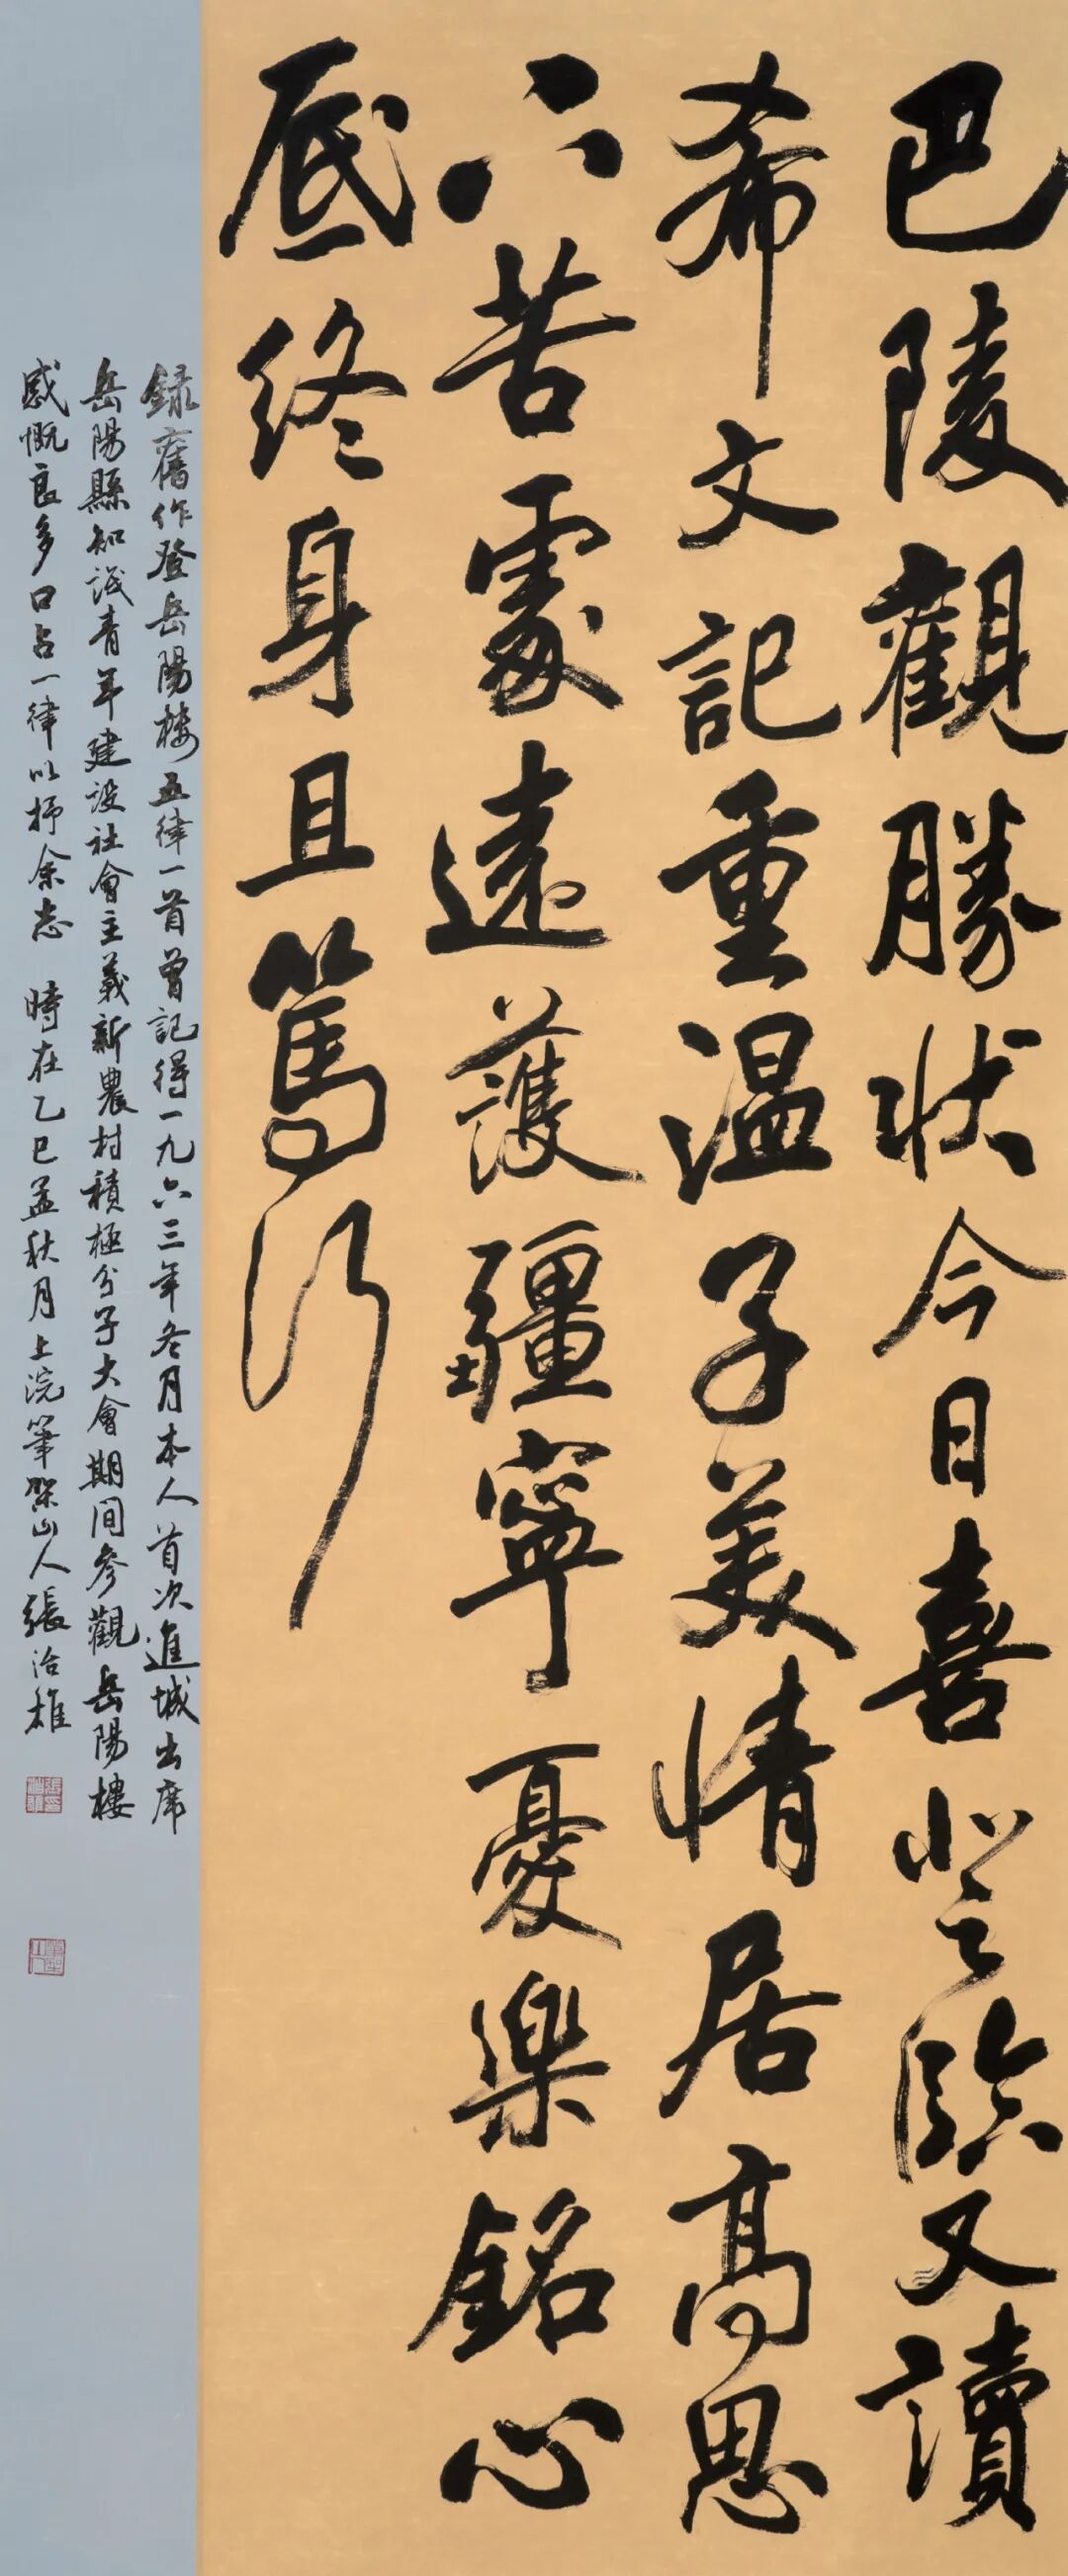 巴陵觀勝狀今日喜登臨又讀
希文記重温子美情居高思
下苦處遠護疆寧憂樂銘心
底終身且篤行
録舊作登岳陽樓五律一首曾記得一九六三年冬月本人首次進城出席
岳陽縣知識青年建设社會主義新農村積極分子大會期间參觀岳陽樓
感慨良多口占一律以抒余志 時在乙巳孟秋月上浣筆架山人張治雄